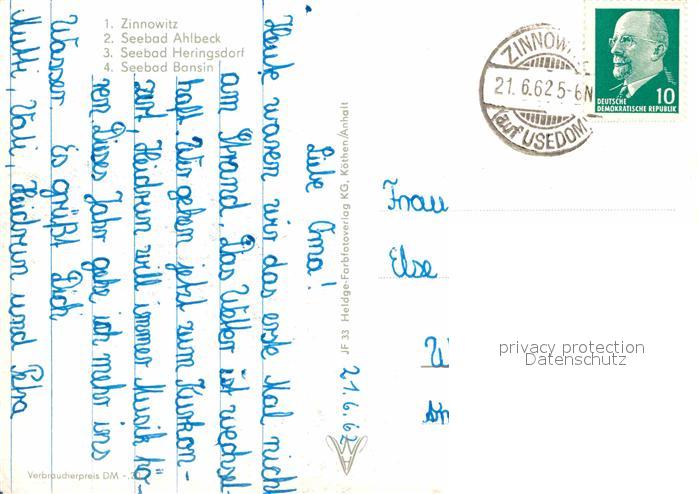 1. Zinnowitz
2. Seebad Ahlbeck
3. Seebad Heringsdorf
4. Seebad Bansin
21.6.62
Liebe Oma!
Heute waren wir das erste Mal nicht
am Strand. Das Wetter ist wechsel-
haft. Wir gehen jetzt zum Kurkon-
zert, Heidrun will immer Musik hö-
ren. Dieses Jahr gehe ich mehr ins
Wasser. Es grüßt Dich
Mutti, Vati, Heidrun und Petra
Verbraucherpreis DM -,20
JF 33 Heldge-Farbfotoverlag KG, Köthen/Anhalt
ZINNOW
21.6.62 5-6N
(auf USEDOM
10
DEUTSCHE
DEMOKRATISCHE REPUBLIK
Frau
Else
privacy protection
Datenschutz